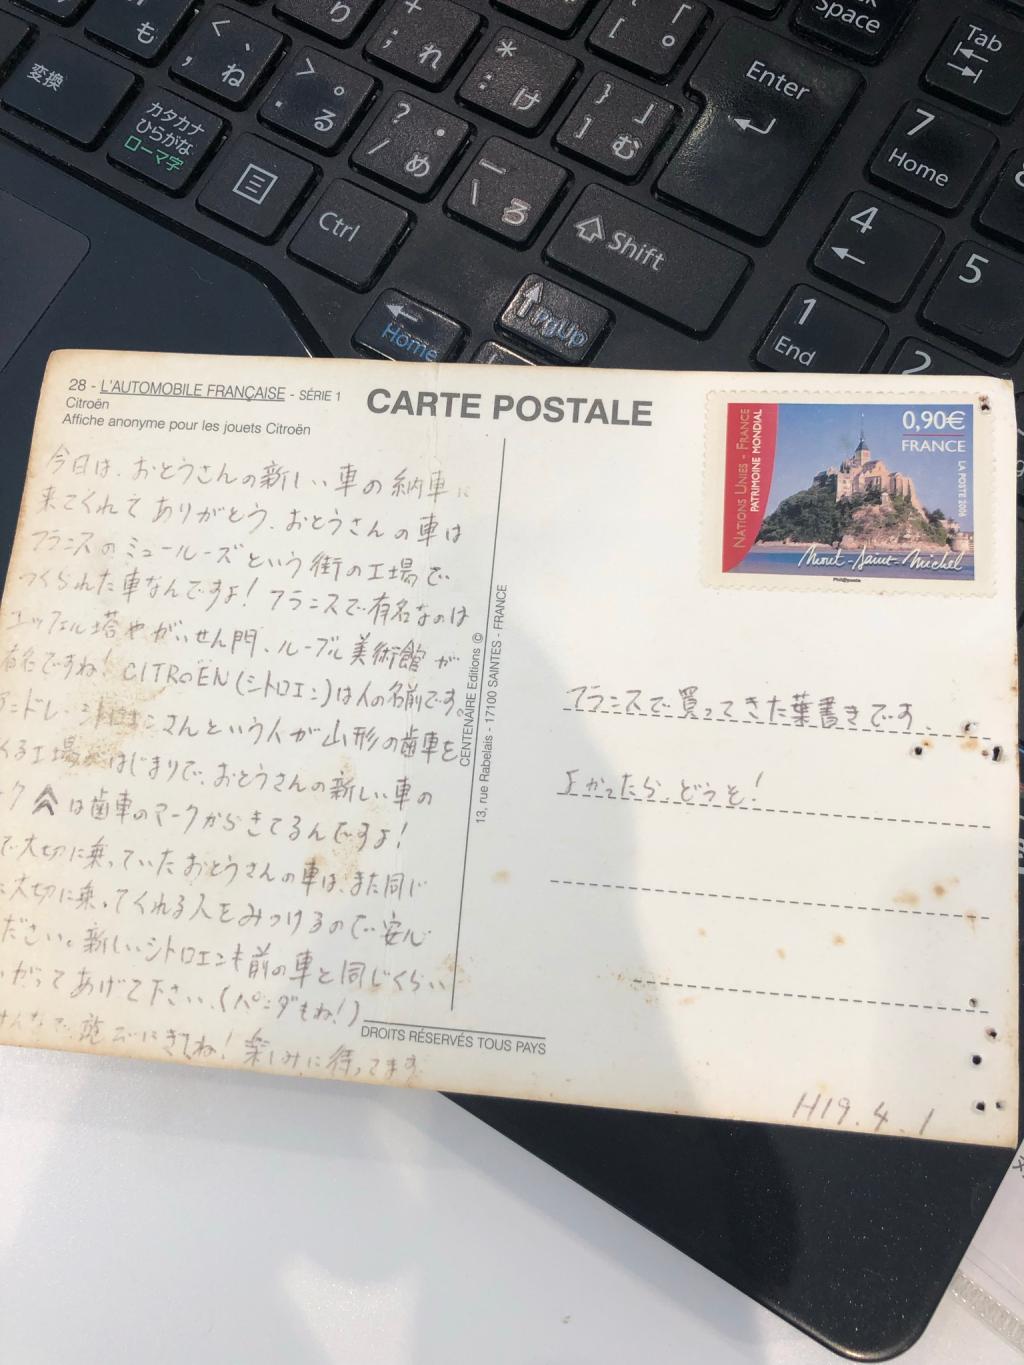 も
く
、
ね
り
+
;
れ
「
[
。
Space
Tab
変換
カタカナ
ひらがな
ローマ字
>
。
.
る
*
:
け
}
」
]
む
Enter
7
Home
?
・
/
め
ー
\
ろ
Ctrl
Shift
4
5
Home
PgUp
1
End
2
28 - L'AUTOMOBILE FRANÇAISE - SÉRIE 1
Citroën
Affiche anonyme pour les jouets Citroën
CARTE POSTALE
NATIONS UNIES - FRANCE
PATRIMOINE MONDIAL
0,90€
FRANCE
LA POSTE 2006
Mont-Saint-Michel
Phil@poste
今日は、おとうさんの新しい車の納車に
来てくれてありがとう。おとうさんの車は
フランスのミュールーズという街の工場で
つくられた車なんですよ！フランスで有名なのは
エッフェル塔やがいせん門、ルーブル美術館が
有名ですね！CITROËN(シトロエン)は人の名前です。
アンドレ・シトロエンさんという人が山形の歯車を
くる工場がはじまりで、おとうさんの新しい車の
ークは歯車のマークからきてるんですよ！
で大切に乗っていたおとうさんの車は、また同じ
に大切に乗ってくれる人をみつけるので安心
ださい。新しいシトロエンも前の車と同じくらい
いがってあげて下さい。(パンダもね！)
みんなで遊びにきてね！楽しみに待ってます
CENTENAIRE Editions ©
13, rue Rabelais - 17100 SAINTES - FRANCE
DROITS RÉSERVÉS TOUS PAYS
フランスで買ってきた葉書きです。
よかったら、どうぞ！
H19.4.1